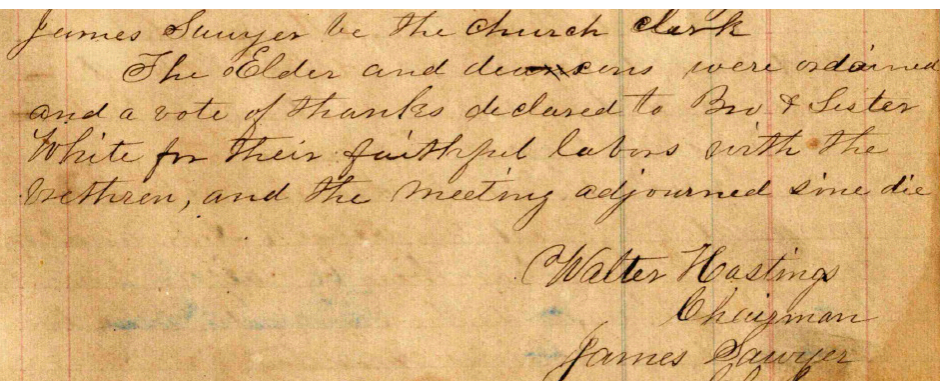 James Sawyer be the church clerk
The Elder and deacons were ordained
and a vote of thanks declared to Bro & Sister
White for their faithful labors with the
brethren, and the meeting adjourned sine die
Walter Hastings
Chairman
James Sawyer